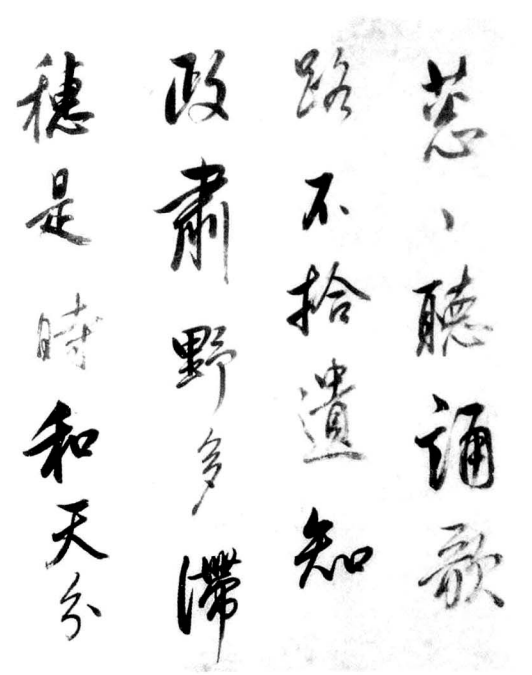 蔥、聽誦歌
路不拾遺知
政肅野多滯
穗是時和天分